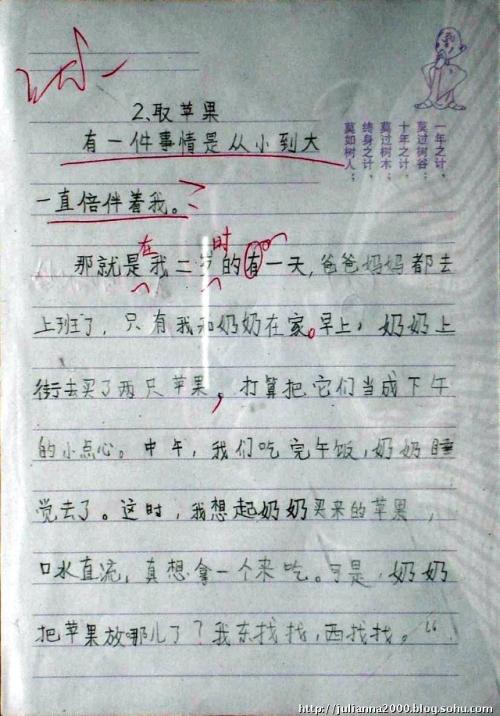 一年之计，
莫过树谷；
十年之计，
莫过树木；
终身之计，
莫如树人；
2、取苹果
有一件事情是从小到大
一直倍伴着我。
在 时
那就是我二岁的有一天，爸爸妈妈都去
上班了，只有我和奶奶在家。早上，奶奶上
街去买了两只苹果，打算把它们当成下午
的小点心。中午，我们吃完午饭，奶奶睡
觉去了。这时，我想起奶奶买来的苹果，
口水直流，真想拿一个来吃。可是，奶奶
把苹果放哪儿了？我东找找，西找找。“
http://julianna2000.blog.sohu.com